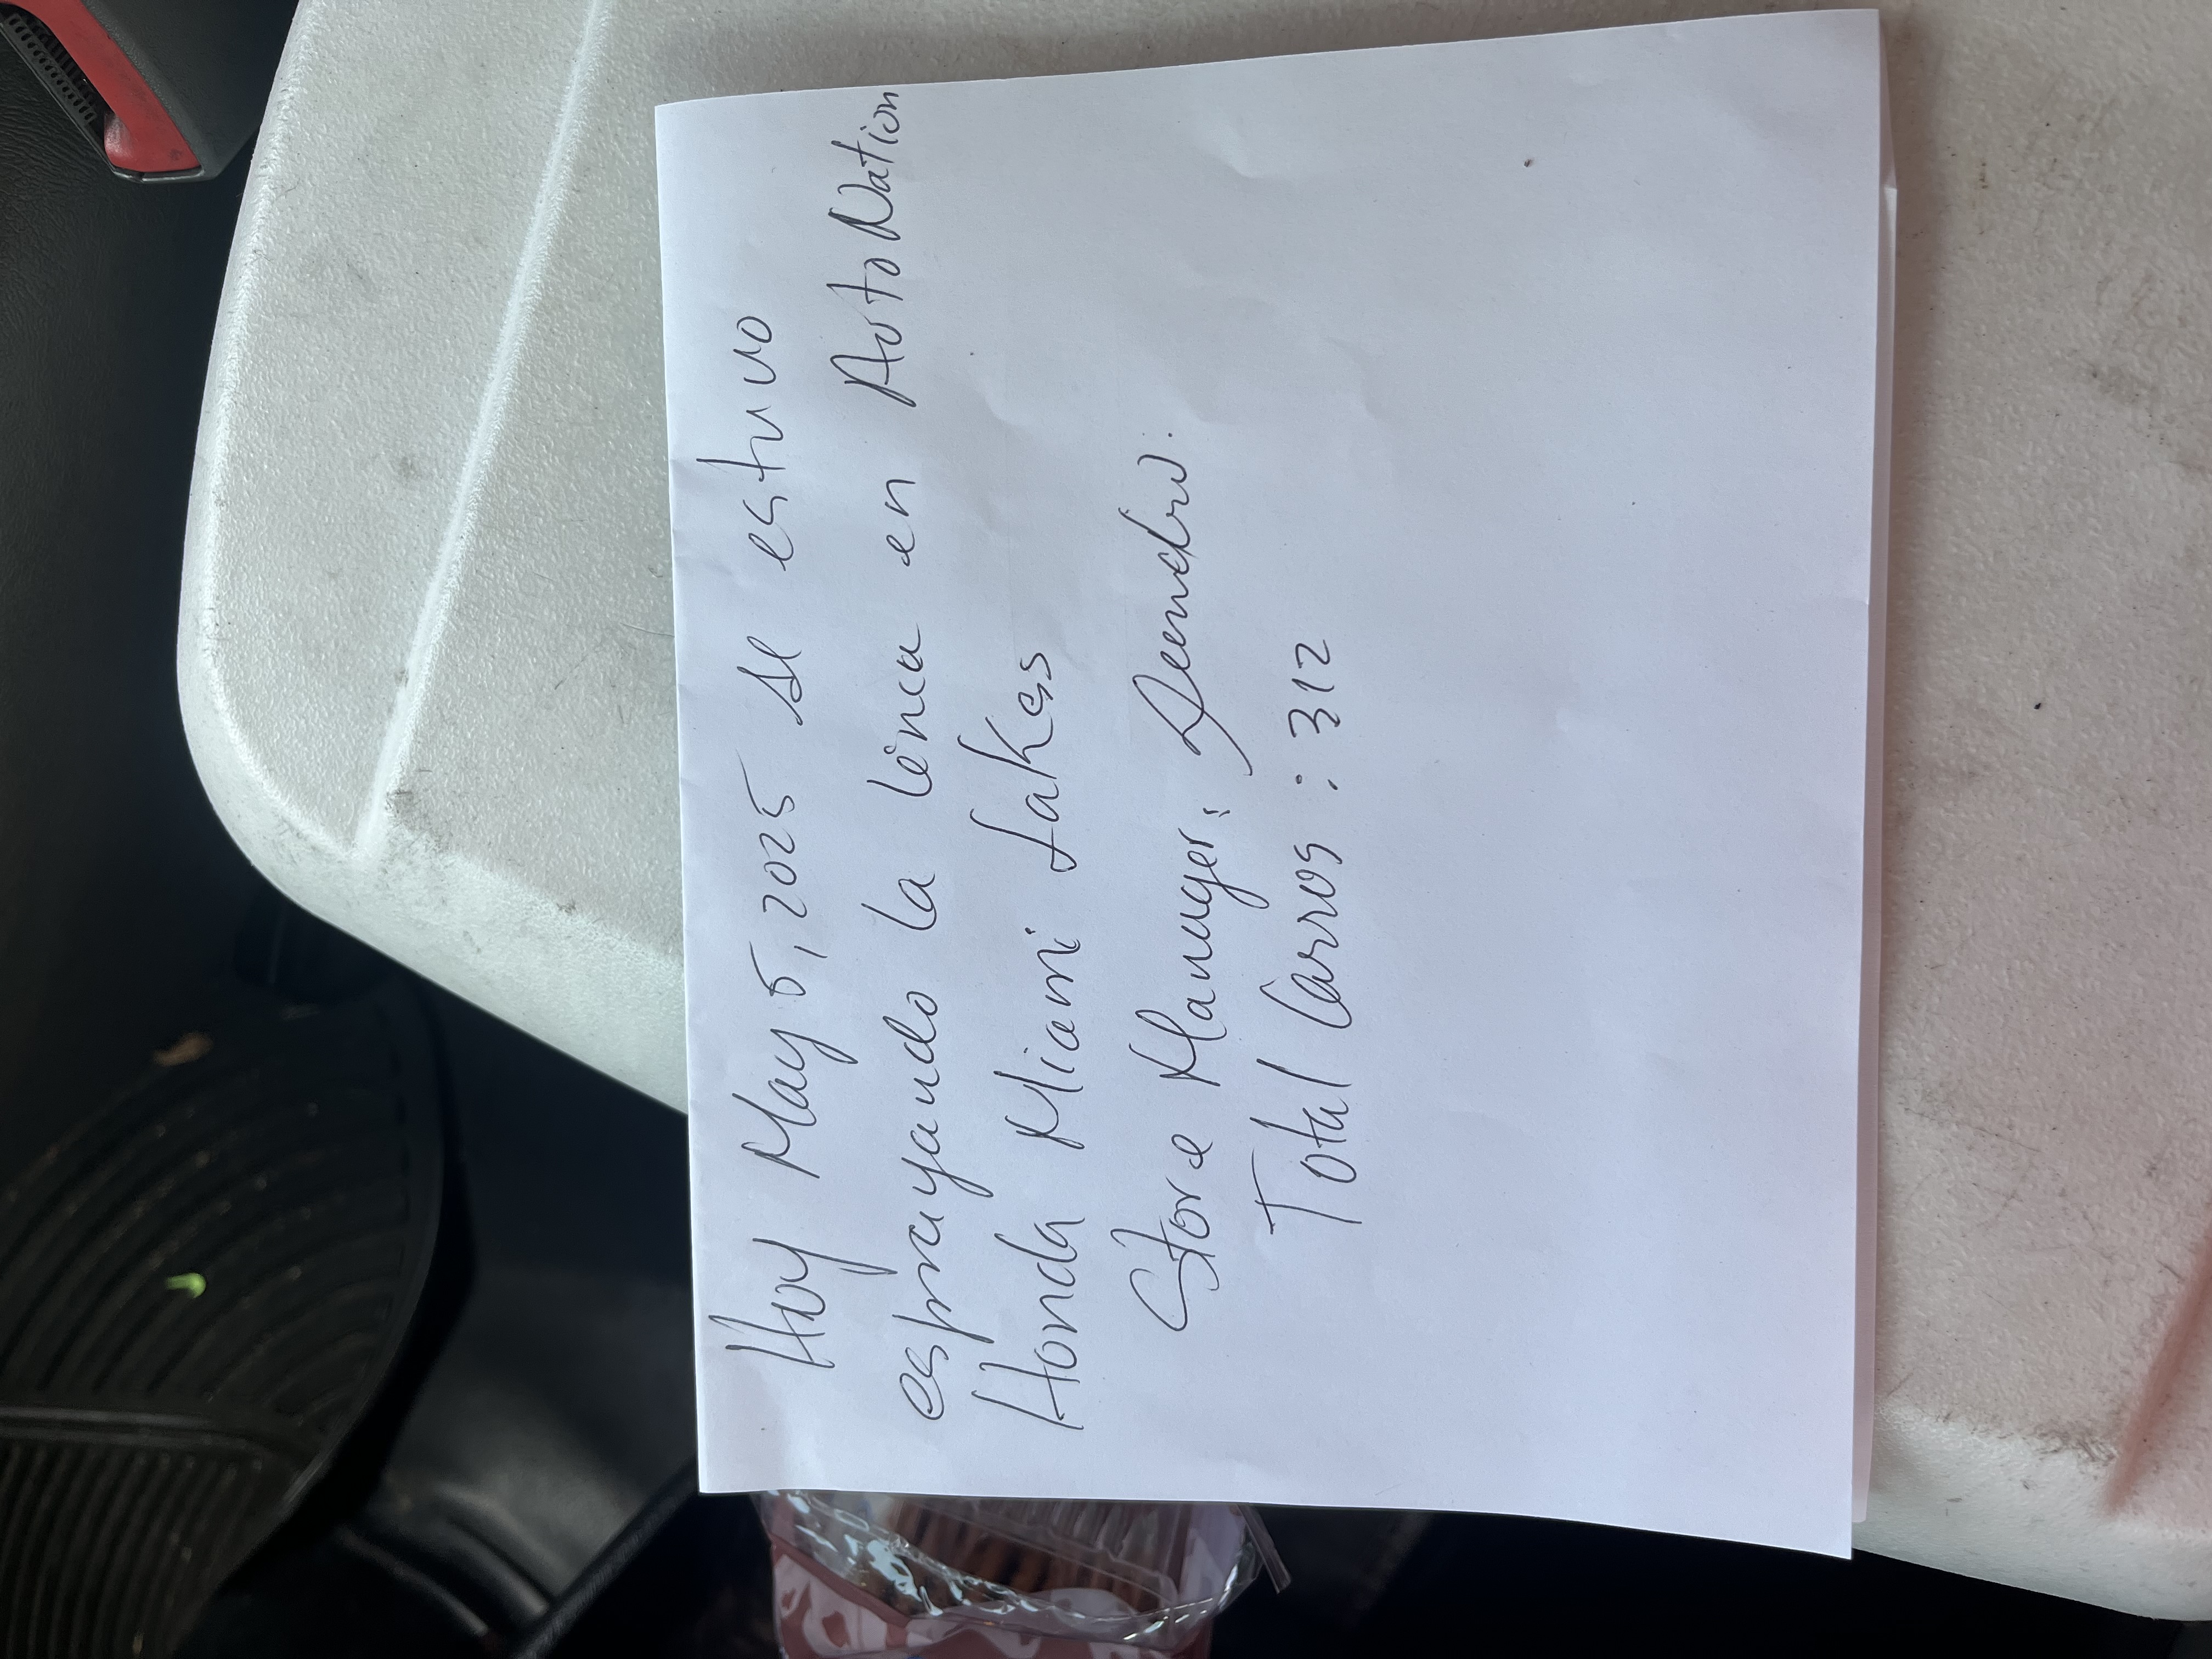 Hoy May 5, 2025 se estuvo
esprayando la línea en AutoNation
Honda Miami Lakes
Store Manager:
Total Carros: 312